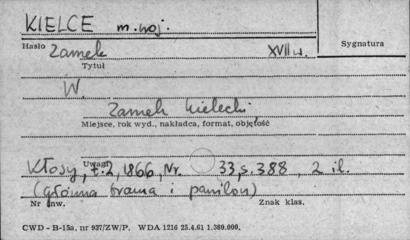 KIELCE m. woj.
Hasło Zamek XVII w. Sygnatura
Tytuł
W.
Zamek kielecki
Miejsce, rok wyd., nakładca, format, objętość
Uwagi
Kłosy, t. 2, 1866, Nr. 33, s. 388, 2 il.
(główna brama i pawilon)
Nr inw. Znak klas.
CWD - B-15a, nr 937/ZW/P. WDA 1216 25.4.61 1.389.000.